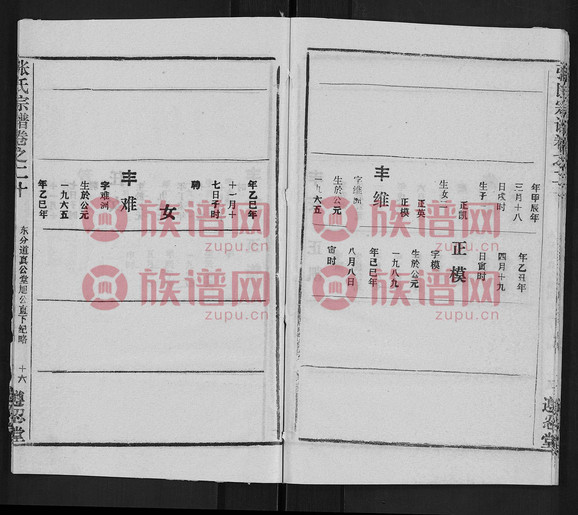 年甲辰年
三月十八
日戌时
生子
正凯
生女二
正英
正模
丰维
生於公元
一九六五
年乙丑年
四月十九
日寅时
正模
字模
生於公元
一九八九
年己巳年
八月八日
寅时
年乙巳年
十一月十
七日子时
聘
女
丰难
字难洲
生於公元
一九六五
年乙巳年
张氏宗谱卷之二十
东分道真公堂旭公直下纪略
十六
遵忍堂
族谱网
zupu.cn
族谱网
zupu.cn
族谱网
zupu.cn
族谱网
zupu.cn